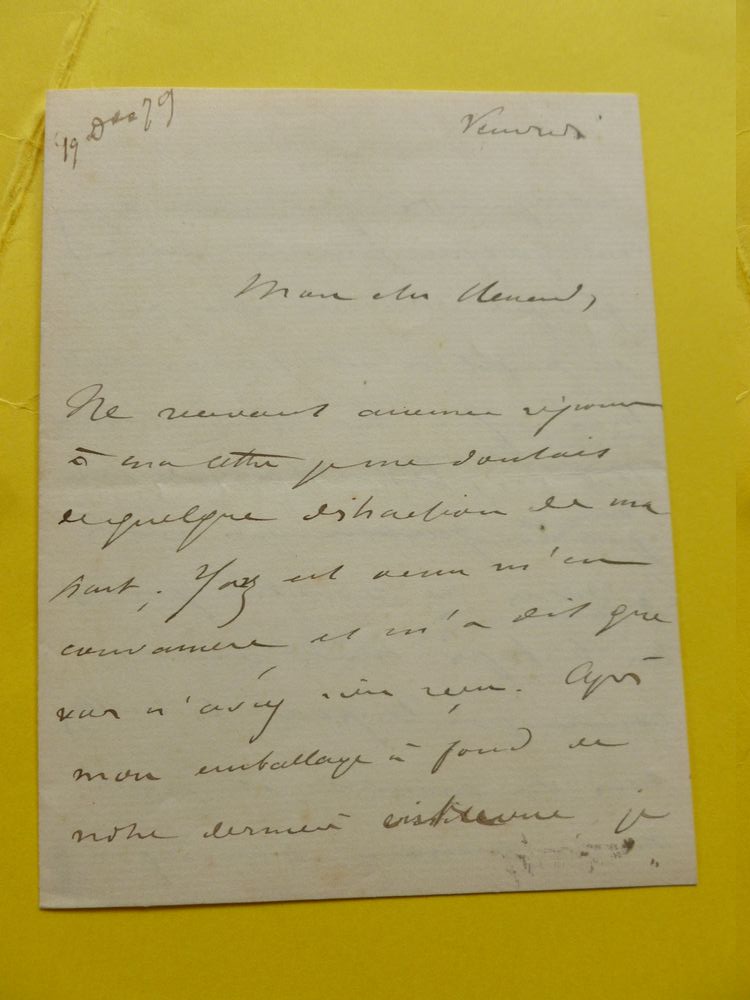 19 Dec 79
Vendredi
Mon cher
Ne recevant aucune réponse
à ma lettre je me doutais
de quelque distraction de ma
part. est venu m'en
convaincre et m'a dit que
vous n'aviez rien reçu. Après
mon emballage à fond de
notre dernière je